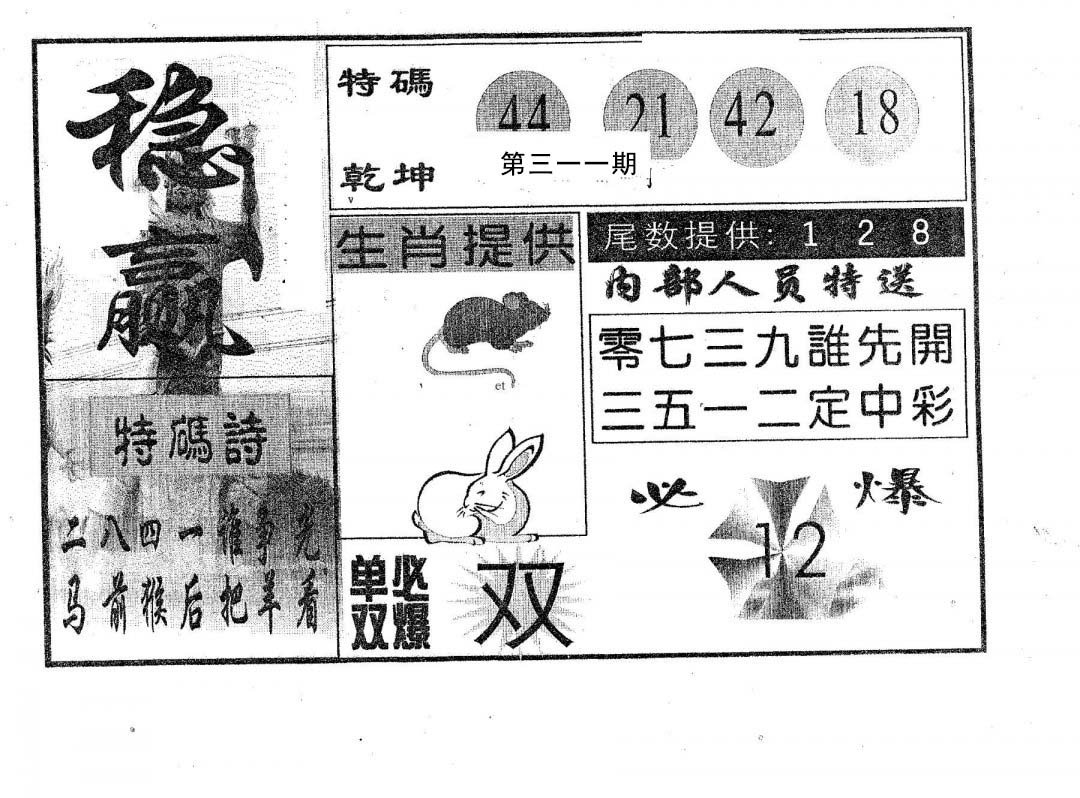 稳赢
特碼 44 21 42 18
第三一一期
乾坤
生肖提供
尾数提供: 1 2 8
内部人员特送
零七三九誰先開
三五一二定中彩
et
特碼詩
二八四一谁争先
马前猴后把羊看
必爆
12
单双必爆
双